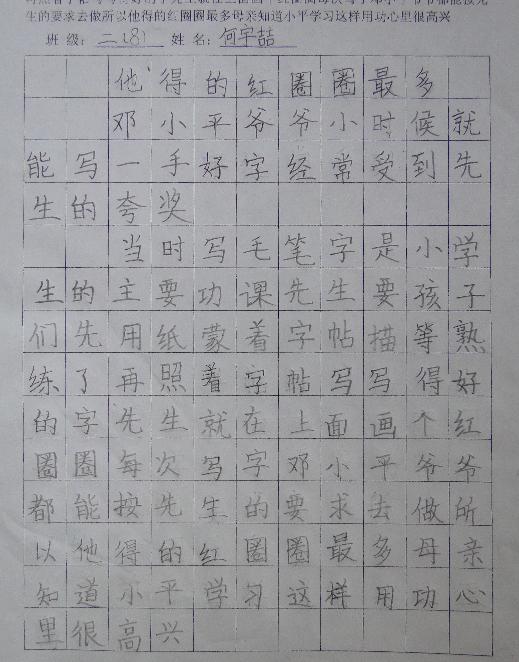 生的要求去做所以他得的红圈圈最多母亲知道小平学习这样用功心里很高兴
班 级: 二(8) 姓 名: 何宇喆
他得的红圈圈最多
邓小平爷爷小时候就
能写一手好字经常受到先
生的夸奖
当时写毛笔字是小学
生的主要功课先生要孩子
们先用纸蒙着字帖描等熟
练了再照着字帖写写得好
的字先生就在上面画个红
圈圈每次写字邓小平爷爷
都能按先生的要求去做所
以他得的红圈圈最多母亲
知道小平学习这样用功心
里很高兴